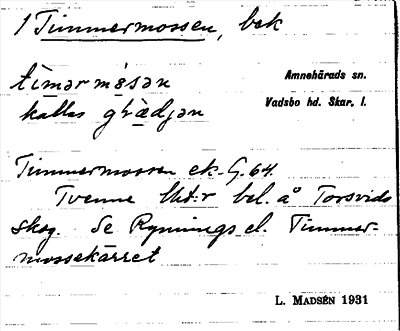 1 Timmermossen, bek
tìmǝrmòsǝn
Amnehärads sn.
kallas grǜdjǝn
Vadsbo hd. Skar. l.
Timmermossen ek. G. 64.
Tvenne bel. å Torsvids
skog. Se Rynnings el. Timmer-
mossekärret
L. MADSÉN 1931